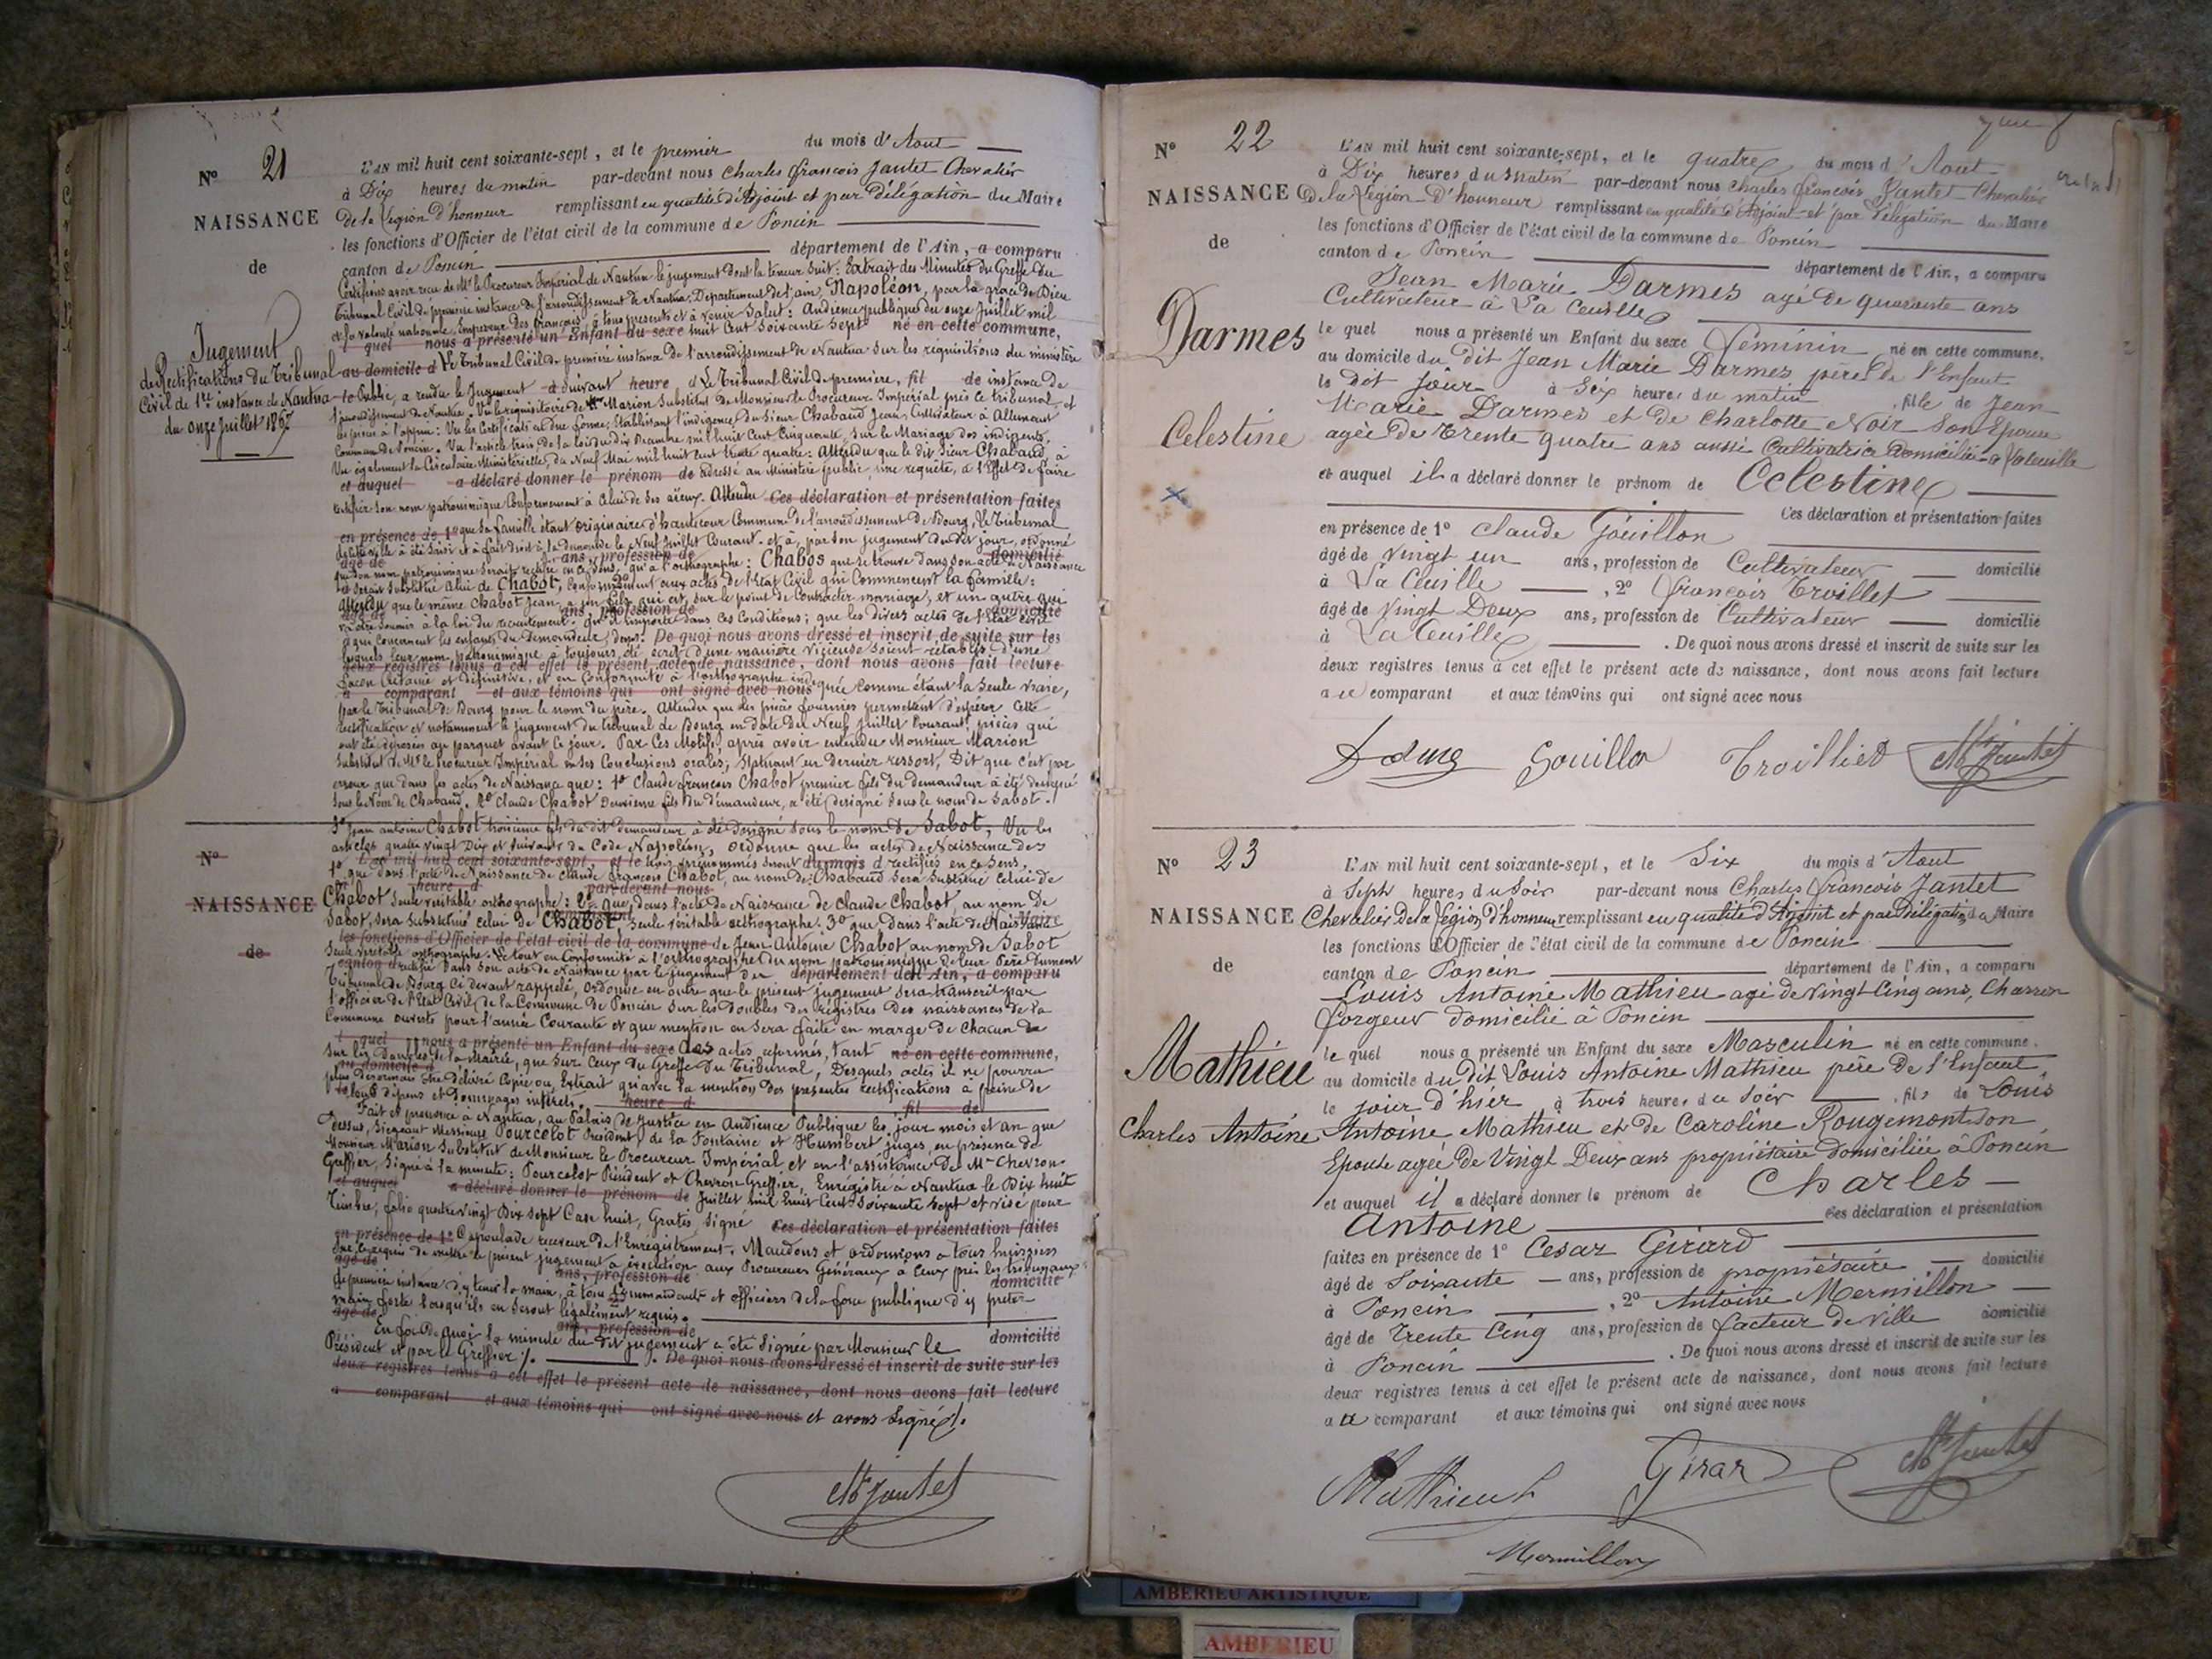 Nº 21
NAISSANCE
de
Jugement
de Rectifications du Tribunal
Civil de 1re instance de Nantua
du onze Juillet 1867
L'AN mil huit cent soixante-sept, et le premier du mois d'Aout
à Dix heures du matin par-devant nous Charles françois Jantet Chevalier
de la Légion d'honneur remplissant en qualité d'Adjoint et par Délégation du Maire
les fonctions d'Officier de l'état civil de la commune de Poncin
canton de Poncin département de l'Ain, a comparu
Certifions avoir recu de Mr le Procureur Impérial de Nantua le jugement dont la teneur suit: Extrait des Minutes du Greffe du
Tribunal Civil de première instance de l'arrondissement de Nantua, Département de l'ain, Napoléon, par la grace de Dieu
et la volonté nationale, Empereur des français, à tous presents et à venir Salut: Audience publique du onze Juillet mil
quel nous a présenté un Enfant du sexe huit Cent Soixante Sept né en cette commune,
au domicile d Le Tribunal Civil de première instance de l'arrondissement de Nantua sur les réquisitions du ministère
Public, a rendu le Jugement suivant heure d Le Tribunal Civil de première, fil de instance de
l'arrondissement de Nantua. Vu le requisitoire de Mr Marion Substitut de Monsieur le Procureur Impérial près ce tribunal et
les pièces à l'appui: Vu les Certificats en due forme, Etablissant l'indigence du Sieur Chabaud Jean, Cultivateur à Allement
Commune de Poncin. Vu l'article trois de la loi du dix Decembre mil huit Cent Cinquante, sur le Mariage des indigents.
Vu également la Circulaire Ministérielle, du Neuf Mai mil huit cent trente quatre: Attendu que le dit Sieur Chabaud, a
et auquel a déclaré donner le prénom de adressé au Ministère public, une requête, à l'Effet de faire
rectifier son nom patronimique Conformement à Celui de Ses aïeux. Attendu Ces déclaration et présentation faites
en présence de 1º que Sa famille étant originaire d'hautecour Commune de l'arrondissement de Bourg, le Tribunal
de cette ville à été Saisi et à fait droit à la demande le Neuf Juillet Courant. et a, par Son jugement du dit jour, ordonné
âgé de ans, profession de domicilié
que Son nom patronimique Serait rectifié en ce Sens, qu'à l'orthographe: Chabos que se trouve dans Son acte de Naissance
Serait Substitué Celui de Chabot, Conformément aux actes de l'Etat Civil qui Concernent la famille:
Attendu que le même Chabot Jean, a un fils qui est, sur le point de Contracter mariage, et un autre qui
âgé de ans, profession de domicilié
va être Soumis à la loi du recrutement. qu'il importe dans ces Conditions; que les divers actes de l'Etat Civil
qui Concernent les enfants du Demandeur, dans De quoi nous avons dressé et inscrit de suite sur les
lesquels leur nom patronimique à toujours, été écrit d'une manière vicieuse Soient rétablis, d'une
deux registres tenus à cet effet le présent acte de naissance, dont nous avons fait lecture
façon Certaine et Définitive, et en Conformité à l'orthographe indiquée Comme étant la Seule vraie,
a comparant et aux témoins qui ont signé avec nous
par le Tribunal de Bourg pour le nom du père. Attendu que les pièces fournies permettent d'opérer Cette
rectification et notamment le jugement du tribunal de Bourg en date du Neuf Juillet Courant, pièces qui
ont été déposées au parquet avant ce jour. Par Ces Motifs, après avoir entendu Monsieur Marion
Substitut de Mr le Procureur Impérial en Ses Conclusions orales; Statuant en Dernier ressort, Dit que c'est par
erreur que dans les actes de Naissance que: 1º Claude françois Chabot premier fils du demandeur à été designé
Sous le Nom de Chabaud. 2º Claude Chabot Deuxième fils du Demandeur, a été designé Sous le nom de Sabot.
3º Jean antoine Chabot troisième fils du dit demandeur à été designé sous le nom de Sabot, Vu les
Nº
NAISSANCE
de
articles quatre vingt Dix et Suivants du Code Napoléon, Ordonne que les actes de Naissance des
L'an mil huit cent soixante-sept, et le trois Susnommés Seront du mois d rectifiés en ce Sens,
1º que dans l'acte de Naissance de Claude françois Chabot, au nom de Chabaud sera Substitué Celui de
heure d par-devant nous
Chabot Seule véritable orthographe: 2º que, dans l'acte de Naissance de Claude Chabot, au nom de
Sabot, Sera Substitué celui de Chabot, Seule véritable orthographe. 3º que dans l'acte de Naissance
les fonctions d'Officier de l'état civil de la commune de Jean-Antoine Chabot au nom de Sabot
Seule véritable orthographe. Le tout en Conformité à l'orthographe du nom patronimique de leur Père dument
canton d rectifié Dans Son acte de Naissance par le jugement du département de l'Ain, a comparu
Tribunal de Bourg Ci devant rappelé, ordonne en outre que le présent jugement Sera transcrit par
l'officier de l'Etat Civil de la Commune de Poncin Sur les doubles des registres Des naissances de la
Commune ouverts pour l'année Courante et que mention en Sera faite en marge de Chacun de
quel nous a présenté un Enfant du sexe des actes réformés, tant né en cette commune,
Sur les Doubles de la mairie, que Sur Ceux du Greffe du Tribunal, Desquels actes il ne pourra
au domicile d
plus désormais être délivré Copie ou, Extrait qu'avec la mention des presentes rectifications à peine de
tous dépens et Dommages intérêts. heure d fil de
Fait et prononcé à Nantua, au Palais de Justice en Audience Publique les, jour mois et an que
dessus, Siegeant Messieurs Pourcelot President, de la Fontaine et Humbert juges, en présence de
Monsieur Marion Substitut de Monsieur le Procureur Impérial, et en l'assistance de Mr Chevron
Greffier, Signé à la minute: Pourcelot Président et Chevron Greffier, Enrégistré à Nantua le Dix huit
et auquel a déclaré donner le prénom de Juillet mil huit Cent Soixante Sept et visé pour
Timbre, folio quatre vingt Dix Sept Case huit, Gratis, Signé Ces déclaration et présentation faites
en présence de 1º receveur de l'Enregistrement. Mandons et ordonnons a tous huissiers
Sur ce requis de mettre le présent jugement à exécution aux Procureurs Généraux à Ceux près les tribunaux
âgé de ans, profession de domicilié
de première instance d'y tenir la main, à tous Commandants et officiers de la force publique d'y preter
main forte lorsqu'ils en Seront légalement requis.
âgé de ans, profession de domicilié
En foi De quoi la minute du dit jugement a été Signée par Monsieur le
Président et par le Greffier %. De quoi nous avons dressé et inscrit de suite sur les
deux registres tenus à cet effet le présent acte de naissance, dont nous avons fait lecture
a comparant et aux témoins qui ont signé avec nous et avons Signé %.
Ch Jantet
Nº 22
NAISSANCE
de
Darmes
Celestine
L'AN mil huit cent soixante-sept, et le quatre du mois d'Aout
à Dix heures du Matin par-devant nous Charles françois Jantet Chevalier
De la Légion D'honneur remplissant en qualité d'Adjoint et par Délégation du Maire
les fonctions d'Officier de l'état civil de la commune de Poncin
canton de Poncin département de l'Ain, a comparu
Jean Marie Darmes agé de quarante ans
Cultivateur à La Cueille
le quel nous a présenté un Enfant du sexe féminin né en cette commune,
au domicile du dit Jean Marie Darmes père de l'Enfant
le dit jour à Six heures du matin, fille de Jean
Marie Darmes et de Charlotte Noir Son Epouse
agée De Trente quatre ans aussi Cultivatrice Domiciliée a la Cueille
et auquel il a déclaré donner le prénom de Celestine
Ces déclaration et présentation faites
en présence de 1º Claude Gouillon
âgé de vingt un ans, profession de Cultivateur domicilié
à La Cueille, 2º françois Troillet
âgé de vingt Deux ans, profession de Cultivateur domicilié
à La Cueille. De quoi nous avons dressé et inscrit de suite sur les
deux registres tenus à cet effet le présent acte de naissance, dont nous avons fait lecture
a ce comparant et aux témoins qui ont signé avec nous
Gouillon Troilliet Ch Jantet
Nº 23
NAISSANCE
de
Mathieu
Charles Antoine
L'AN mil huit cent soixante-sept, et le Six du mois d'Aout
à Sept heures du Soir par-devant nous Charles françois Jantet
Chevalier de la Légion d'honneur remplissant en qualité d'Adjoint et par Délégation du Maire
les fonctions d'Officier de l'état civil de la commune de Poncin
canton de Poncin département de l'Ain, a comparu
Louis Antoine Mathieu agé de Vingt Cinq ans, Charron
forgeur domicilié à Poncin
le quel nous a présenté un Enfant du sexe Masculin né en cette commune,
au domicile du dit Louis Antoine Mathieu père De l'Enfant
le jour d'hier à trois heures du Soir, fils de Louis
Antoine Mathieu et de Caroline Rougemont Son
Epouse agée De Vingt Deux ans propriétaire domiciliée à Poncin
et auquel il a déclaré donner le prénom de Charles
Antoine Ces déclaration et présentation
faites en présence de 1º Cesar Girard
âgé de Soixante ans, profession de propriétaire domicilié
à Poncin, 2º Antoine Mermillon
âgé de Trente Cinq ans, profession de facteur de ville domicilié
à Poncin. De quoi nous avons dressé et inscrit de suite sur les
deux registres tenus à cet effet le présent acte de naissance, dont nous avons fait lecture
a ce comparant et aux témoins qui ont signé avec nous
Mathieu Girard Ch Jantet
Mermillon
AMBERIEU ARTISTIQUE
AMBERIEU